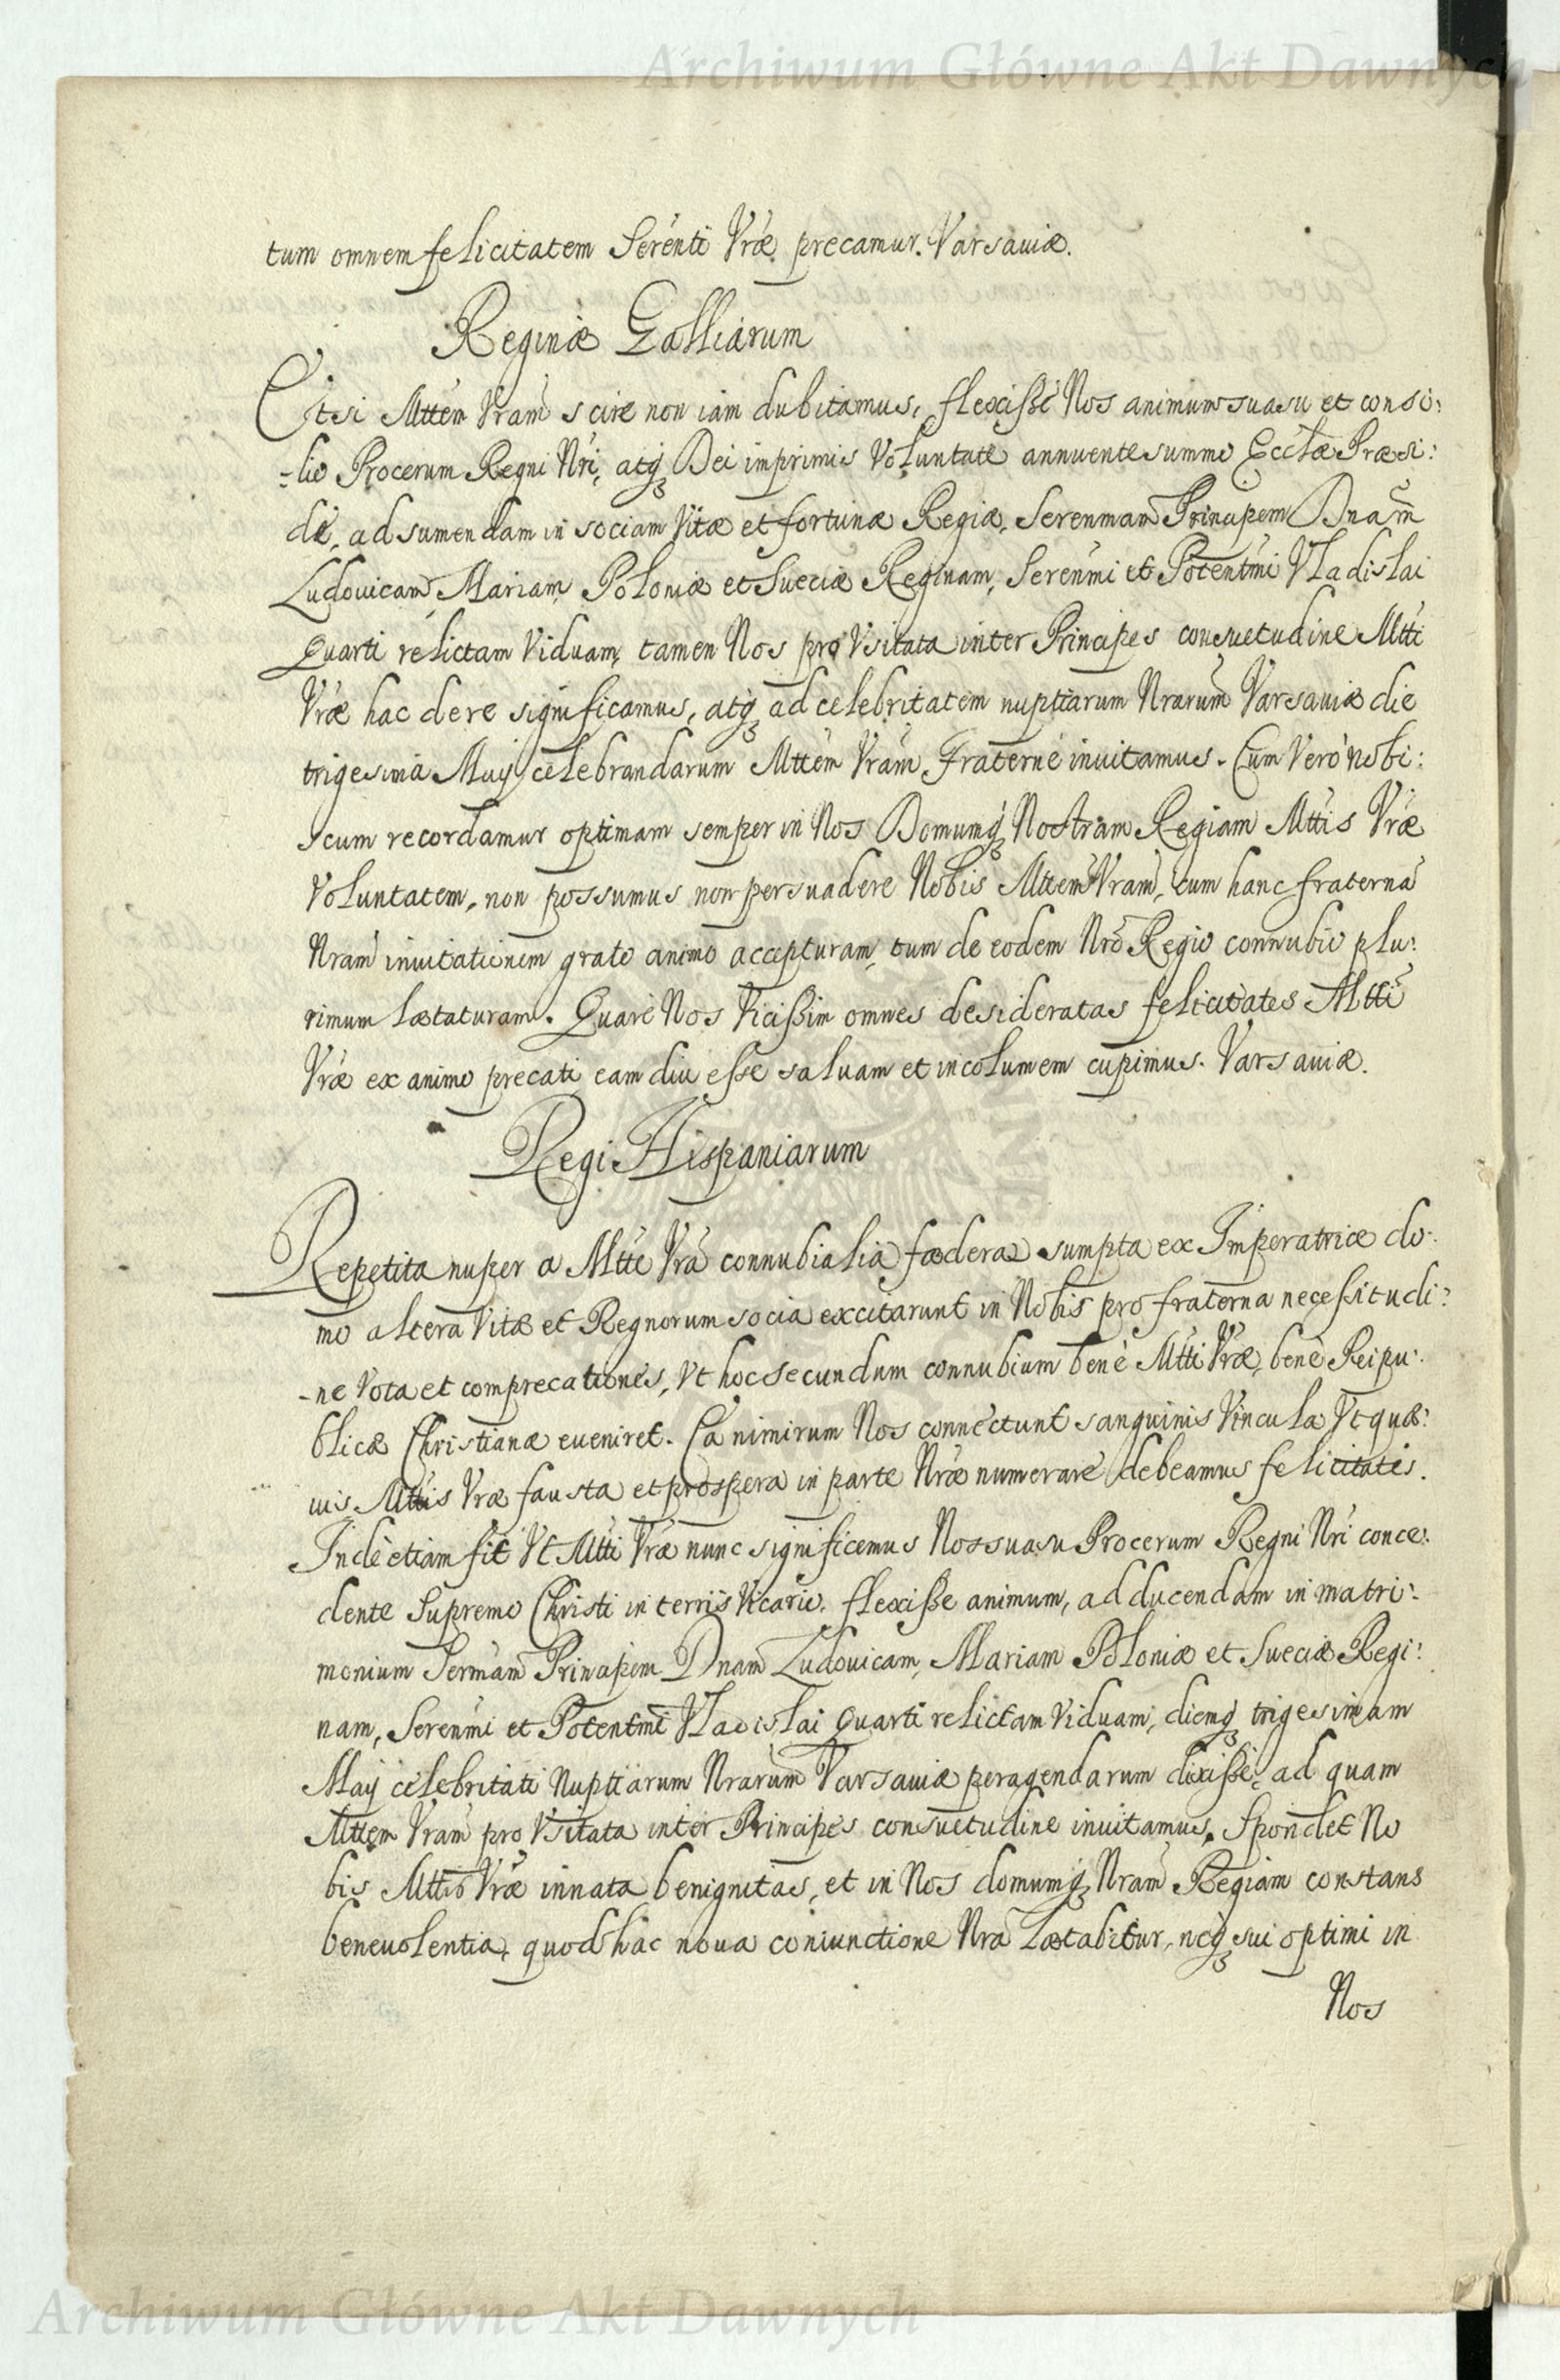 Archiwum Główne Akt Dawnych
tum omnem felicitatem Serenti Vræ precamur. Varsauiæ.
Reginæ Galliarum
Etsi Mttem Vram scire non iam dubitamus, flexisse Nos animum suasu et consi:
-lio Procerum Regni Nri, atq Dei imprimis Voluntate annuente summo Ecclæ Præsi:
de, ad sumendam in sociam Vitæ et fortunæ Regiæ, Serenmam Principem Dnam
Ludouicam Mariam Poloniæ et Sueciæ Reginam, Serenmi et Potentmi Vladislai
Quarti relictam Viduam, tamen Nos pro Vsitata inter Principes consuetudine Mtti
Vræ hac de re significamus, atq ad celebritatem nuptiarum Nrarum Varsauiæ die
trigesima Maij celebrandarum Mttem Vram Fraterne inuitamus. Cum Vero nobi:
scum recordamur optimam semper in Nos Domumq Nostram Regiam Mttis Vræ
Voluntatem, non possumus non persuadere Nobis Mttem Vram, cum hanc fraterna
Nram inuitationem grato animo accepturam, tum de eodem Nro Regio connubio plu:
rimum lætaturam. Quare Nos Vicissim omnes desideratas felicitates Mtti
Vræ ex animo precati eam diu esse saluam et incolumem cupimus. Varsauiæ.
Regi Hispaniarum
Repetita nuper a Mtte Vra connubialia fœdera sumpta ex Imperatrice do:
mo altera Vitæ et Regnorum socia excitarunt in Nobis pro fraterna necessitudi:
-ne Vota et comprecationes, Vt hoc secundum connubium bene Mtti Vræ, bene Reipu:
blicæ Christianæ eueniret. Ea nimirum Nos connectunt sanguinis Vincula Vt quæ:
uis Mttis Vræ fausta et prospera in parte Nræ numerare debeamus felicitatis.
Inde etiam fit Vt Mtti Vræ nunc significemus Nos suasu Procerum Regni Nri conce:
dente Supremo Christi in terris Vicario. flexisse animum, ad ducendam in matri:
monium Sermam Principem Dnam Ludouicam Mariam Poloniæ et Sueciæ Regi:
nam, Serenmi et Potentmi Vladislai Quarti relictam Viduam, diemq trigesimam
Maij celebritati Nuptiarum Nrarum Varsauiæ peragendarum dixisse, ad quam
Mttem Vram pro Vsitata inter Principes consuetudine inuitamus. Spondet No
bis Mttis Vræ innata benignitas, et in Nos domumq Nram Regiam constans
beneuolentia, quod hac noua coniunctione Nra lætabitur, neq sui optimi in
Nos
Archiwum Główne Akt Dawnych